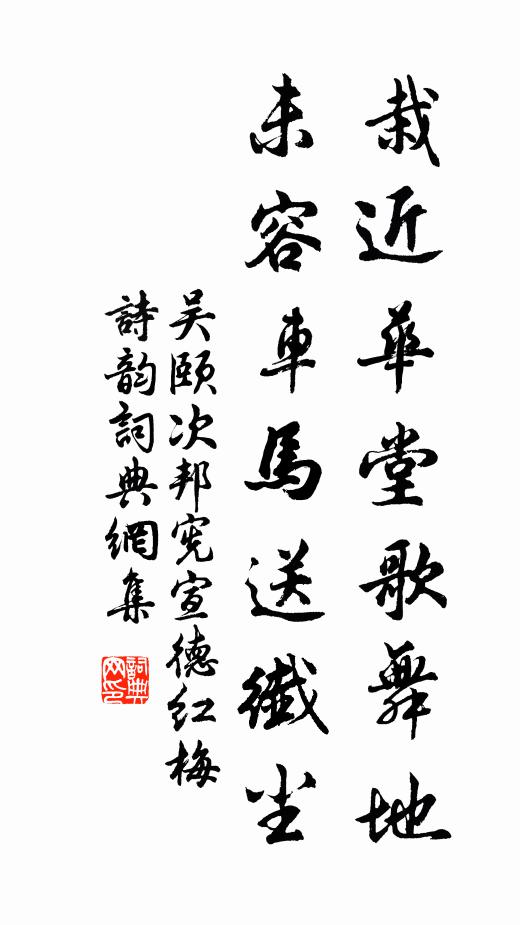 栽近華堂歌舞地
未容車馬送纖尘
吴頤次邦宪宣德红梅
詩韵詞典網集
詞典网印